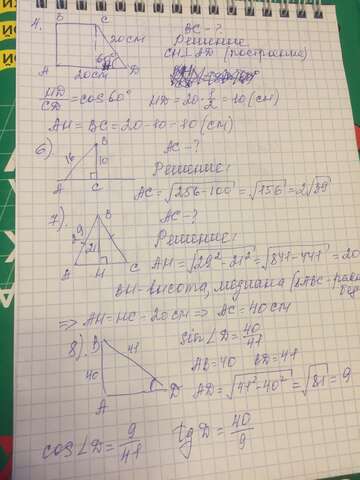 4.
B C
20см
60°
A 20см D
BC - ?
Решение
CH⊥AD (построение)
HD/CD = cos60° HD = 20·1/2 = 10 (см)
AH = BC = 20-10 = 10 (см)
6)
B
16 10
A C
AC - ?
Решение:
AC = √256-100 = √156 = 2√39
7).
B
29
21
A H C
AC - ?
Решение:
AH = √29²-21² = √841-441 =
BH - высота, медиана (ΔABC -
=> AH = HC = 20см => AC = 40см
8)
B
41
40
A D
sin∠D = 40/41
AB = 40 BD = 41
AD = √41²-40² = √81 = 9
cos∠D = 9/41 tgD = 40/9